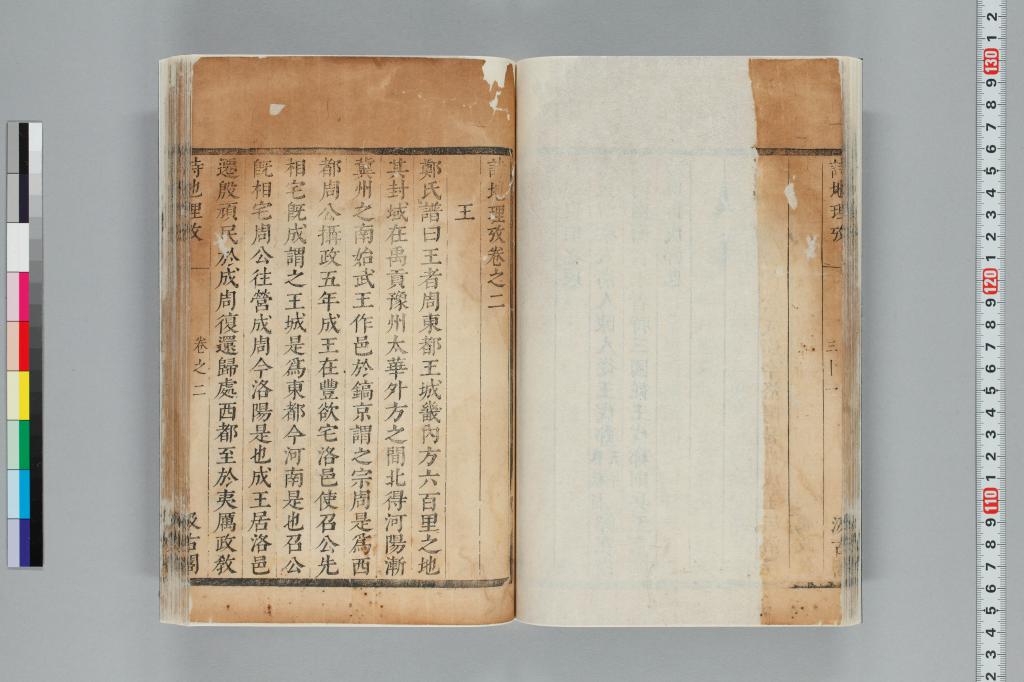 詩地理攷
三十一
汲古
詩地理攷卷之二
王
鄭氏譜曰王者周東都王城畿內方六百里之地
其封域在禹貢豫州太華外方之間北得河陽漸
冀州之南始武王作邑於鎬京謂之宗周是爲西
都周公攝政五年成王在豐欲宅洛邑使召公先
相宅旣成謂之王城是爲東都今河南是也召公
旣相宅周公往營成周今洛陽是也成王居洛邑
遷殷頑民於成周復還歸處西都至於夷厲政敎
詩地理攷
卷之二
汲古閣
2 1 130 9 8 7 6 5 4 3 2 1 120 9 8 7 6 5 4 3 2 1 110 9 8 7 6 5 4 3 2